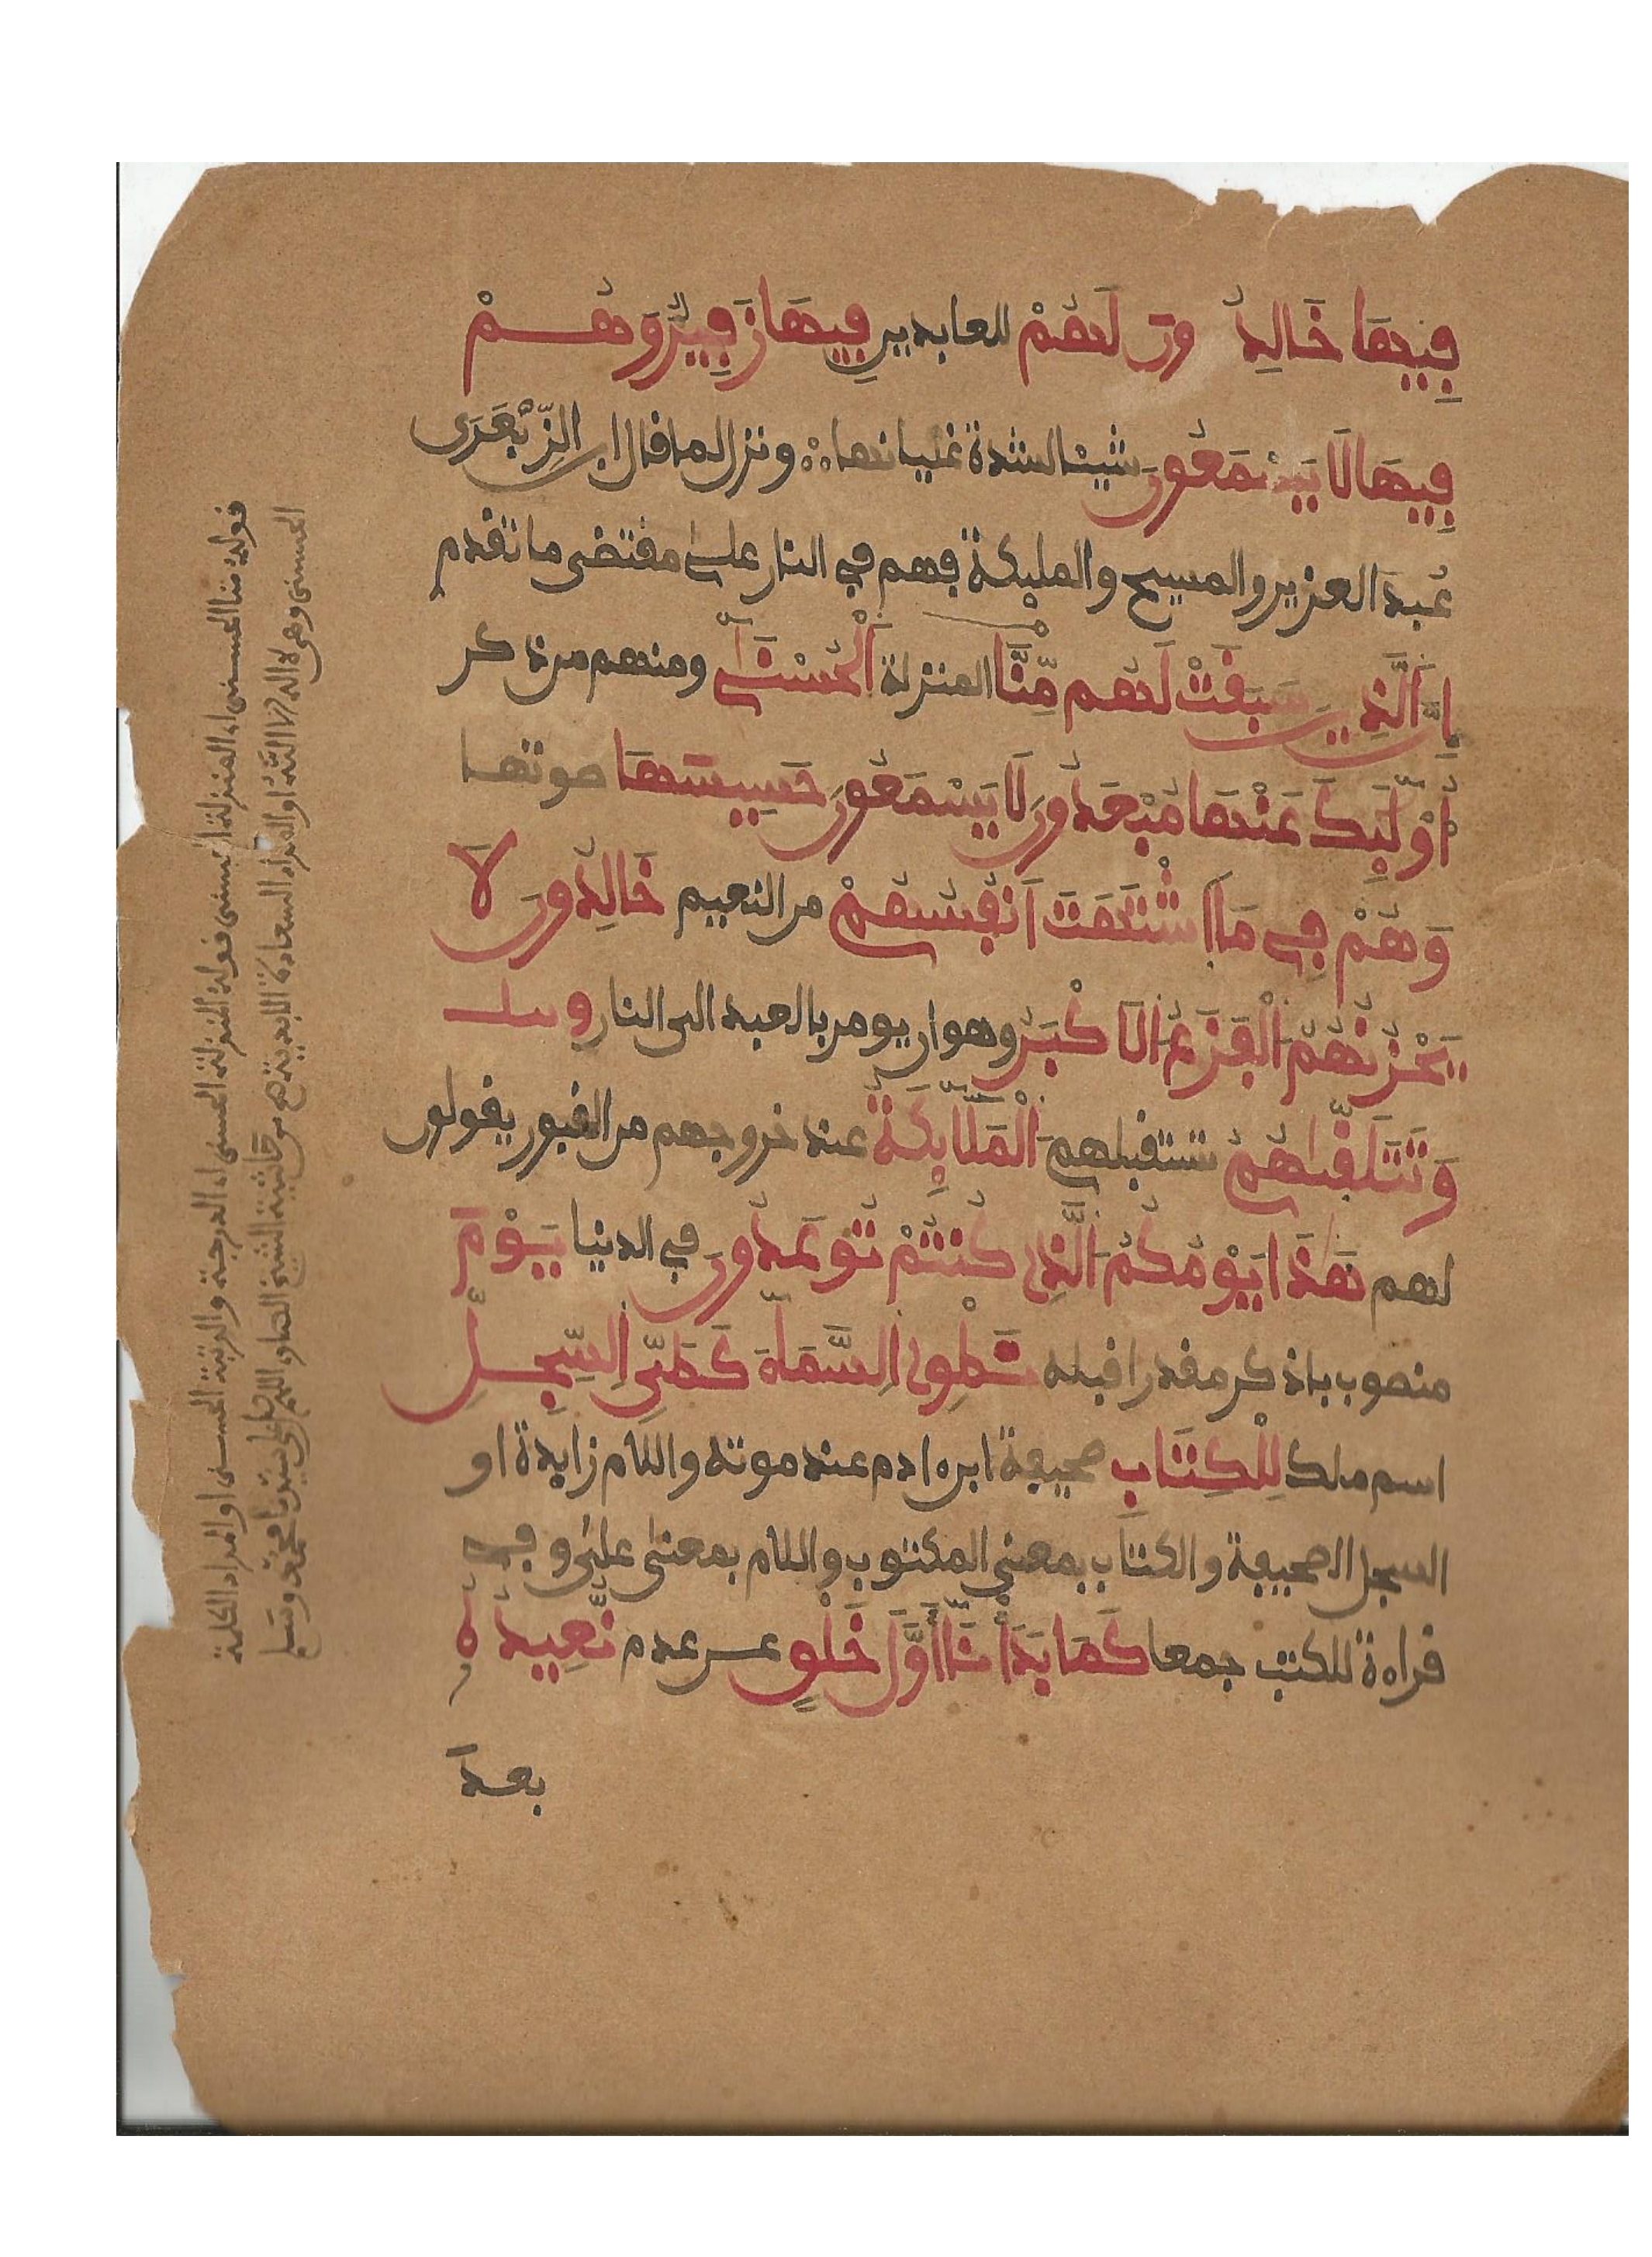 فِيهَا خَالِدُونَ لَهُمْ للعابدين فِيهَا زَفِيرٌ وَهُمْ
فِيهَا لَا يَسْمَعُونَ شيئا لشدة غليانها ؞ ونزل لما قال ابن الزِّبَعْرَى
عُبِدَ العزير والمسيح والمليكة فهم في النار على مقتضى ما تقدم
إِنَّ اَلَّذِينَ سَبَقَتْ لَهُم مِّنَّا المنزلة اَلْحُسْنَىٰ ومنهم من ذكر
أُوْلَٰئِكَ عَنْهَا مُبْعَدُونَ لَا يَسْمَعُونَ حَسِيسَهَا صوتها
وَهُمْ فِي مَا اَشْتَهَتَ اَنفُسُهُمْ من النعيم خَالِدُونَ لَا
يَحْزُنُهُمُ اَلْفَزَعُ اَلَاكْبَرُ وهو ان يومر بالعبد الى النار
وَتَتَلَقَّىٰهُمُ تستقبلهم اَلْمَلَائِكَةُ عند خروجهم من القبور يقولون
لهم هَٰذَا يَوْمُكُمُ اَلَّذِي كُنتُمْ تُوعَدُونَ في الدنيا يَوْمَ
منصوب باذكر مقدرا قبله نَطْوِي اِلسَّمَاءَ كَطَيِّ اِلسِّجِلِّ
اسم ملك لِلْكِتَابِ صحيفة ابن ادم عند موته واللام زايدة او
السجل الصحيفة والكتاب بمعنى المكتوب واللام بمعنى على وفي
قراءة للكتب جمعا كَمَا بَدَأْنَا أَوَّلَ خَلْقٍ عن عدم نُّعِيدُهُ
بعدَ
قوله منا الحسنى اى المنزلة الحسنى قوله المنزلة الحسنى اى الدرجة والرتبة الحسنى او المراد الكلمة
الحسنى وهى لا اله الا الله او المراد السعادة الابدية هـ من حاشية الشيخ الصاوى اللهم صل على سيدنا محمد وسلم